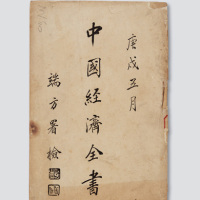 庚戌五月
中國經濟全書
端方署檢